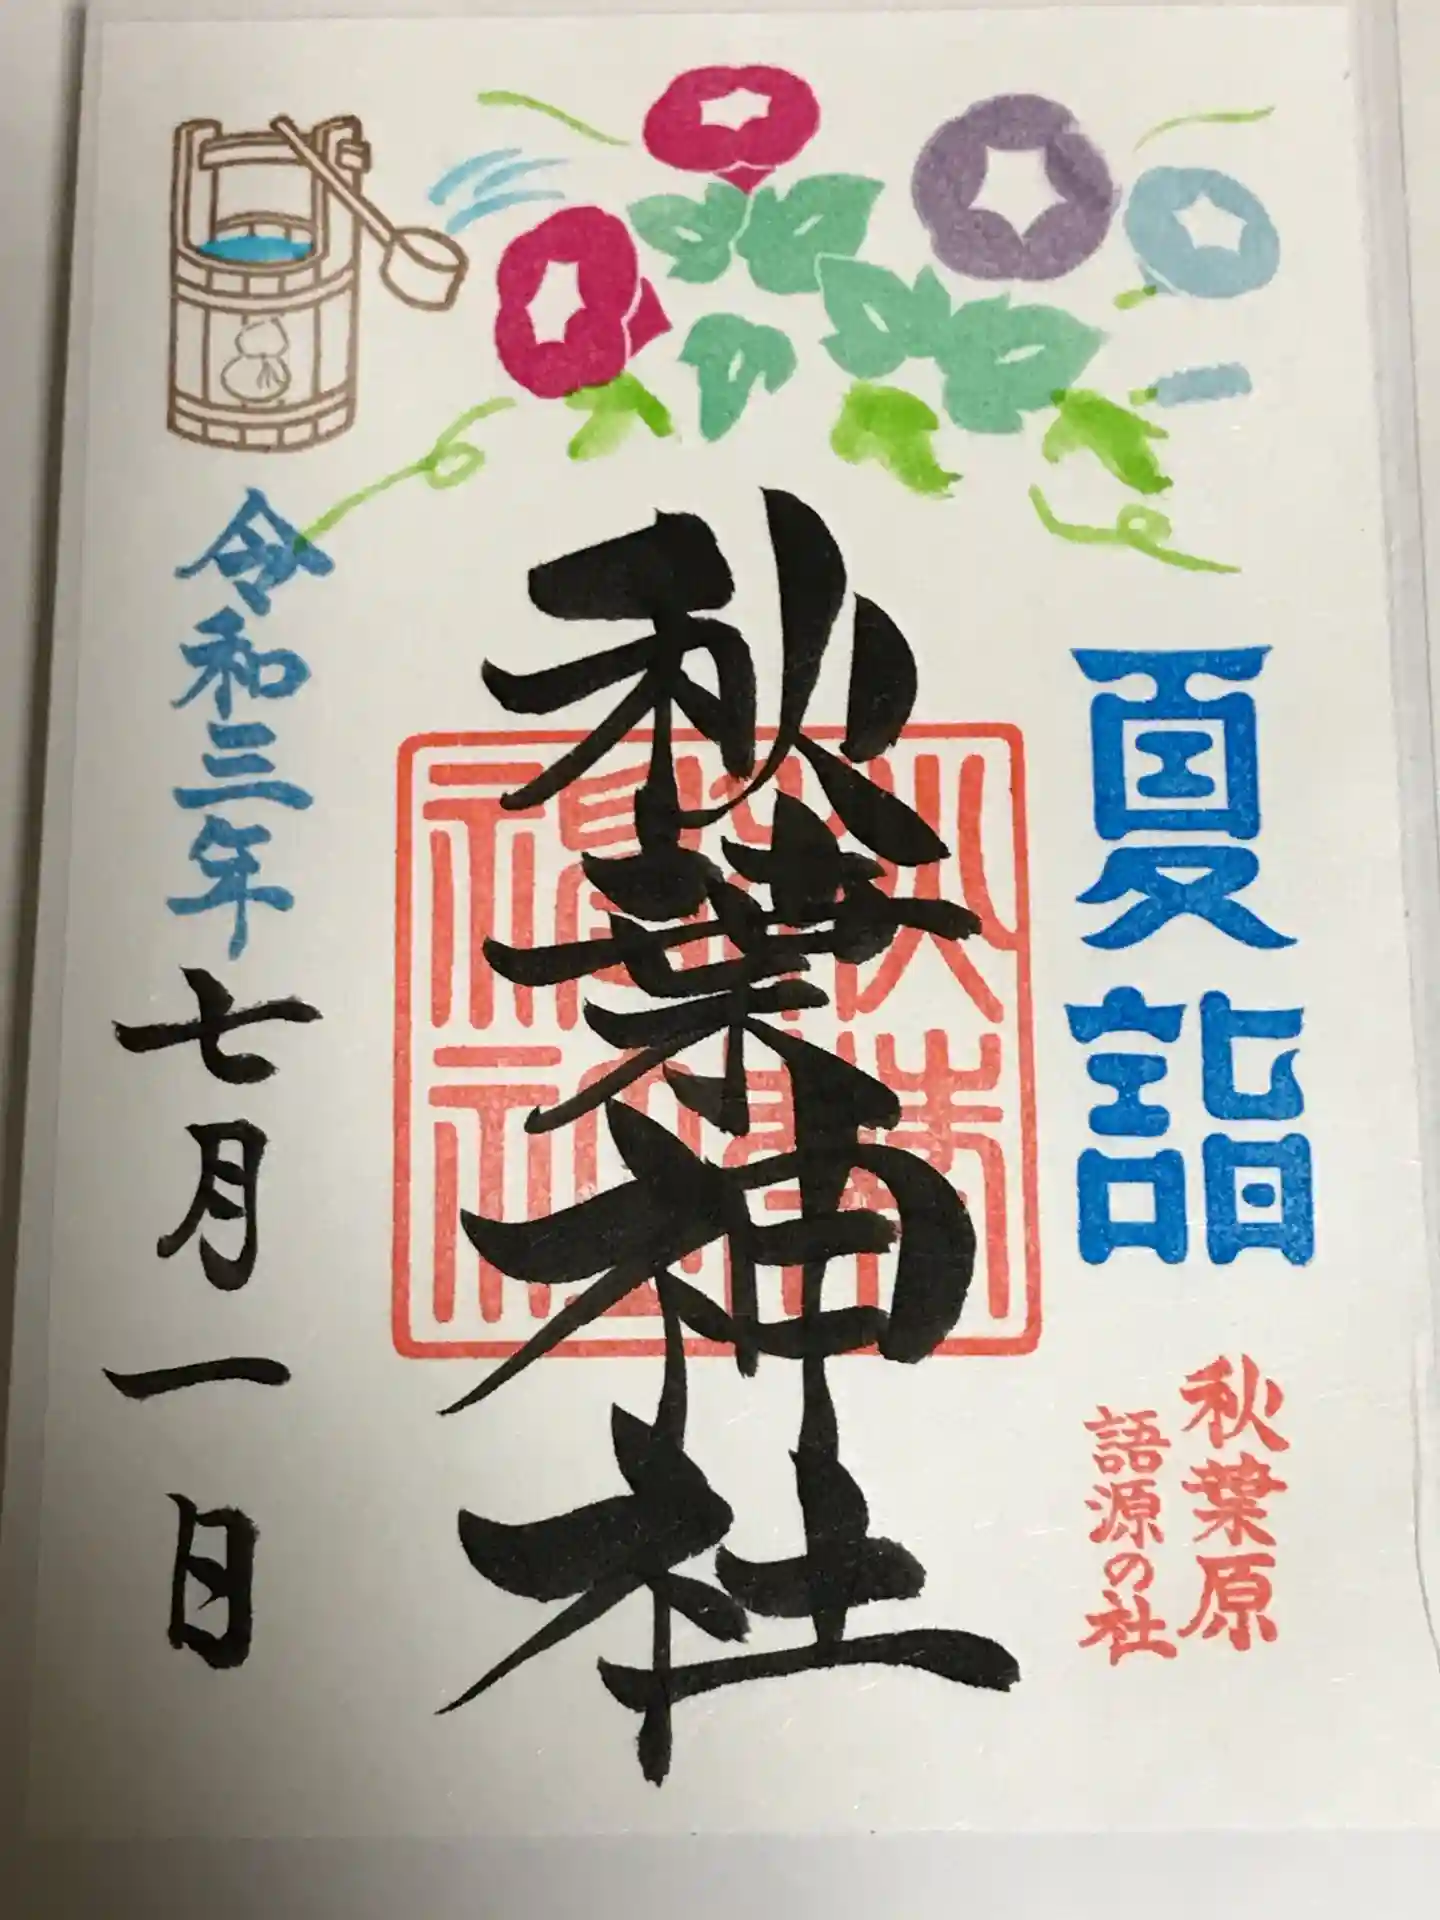 夏詣
秋葉原
語源の社
秋葉神社
令和三年
七月一日